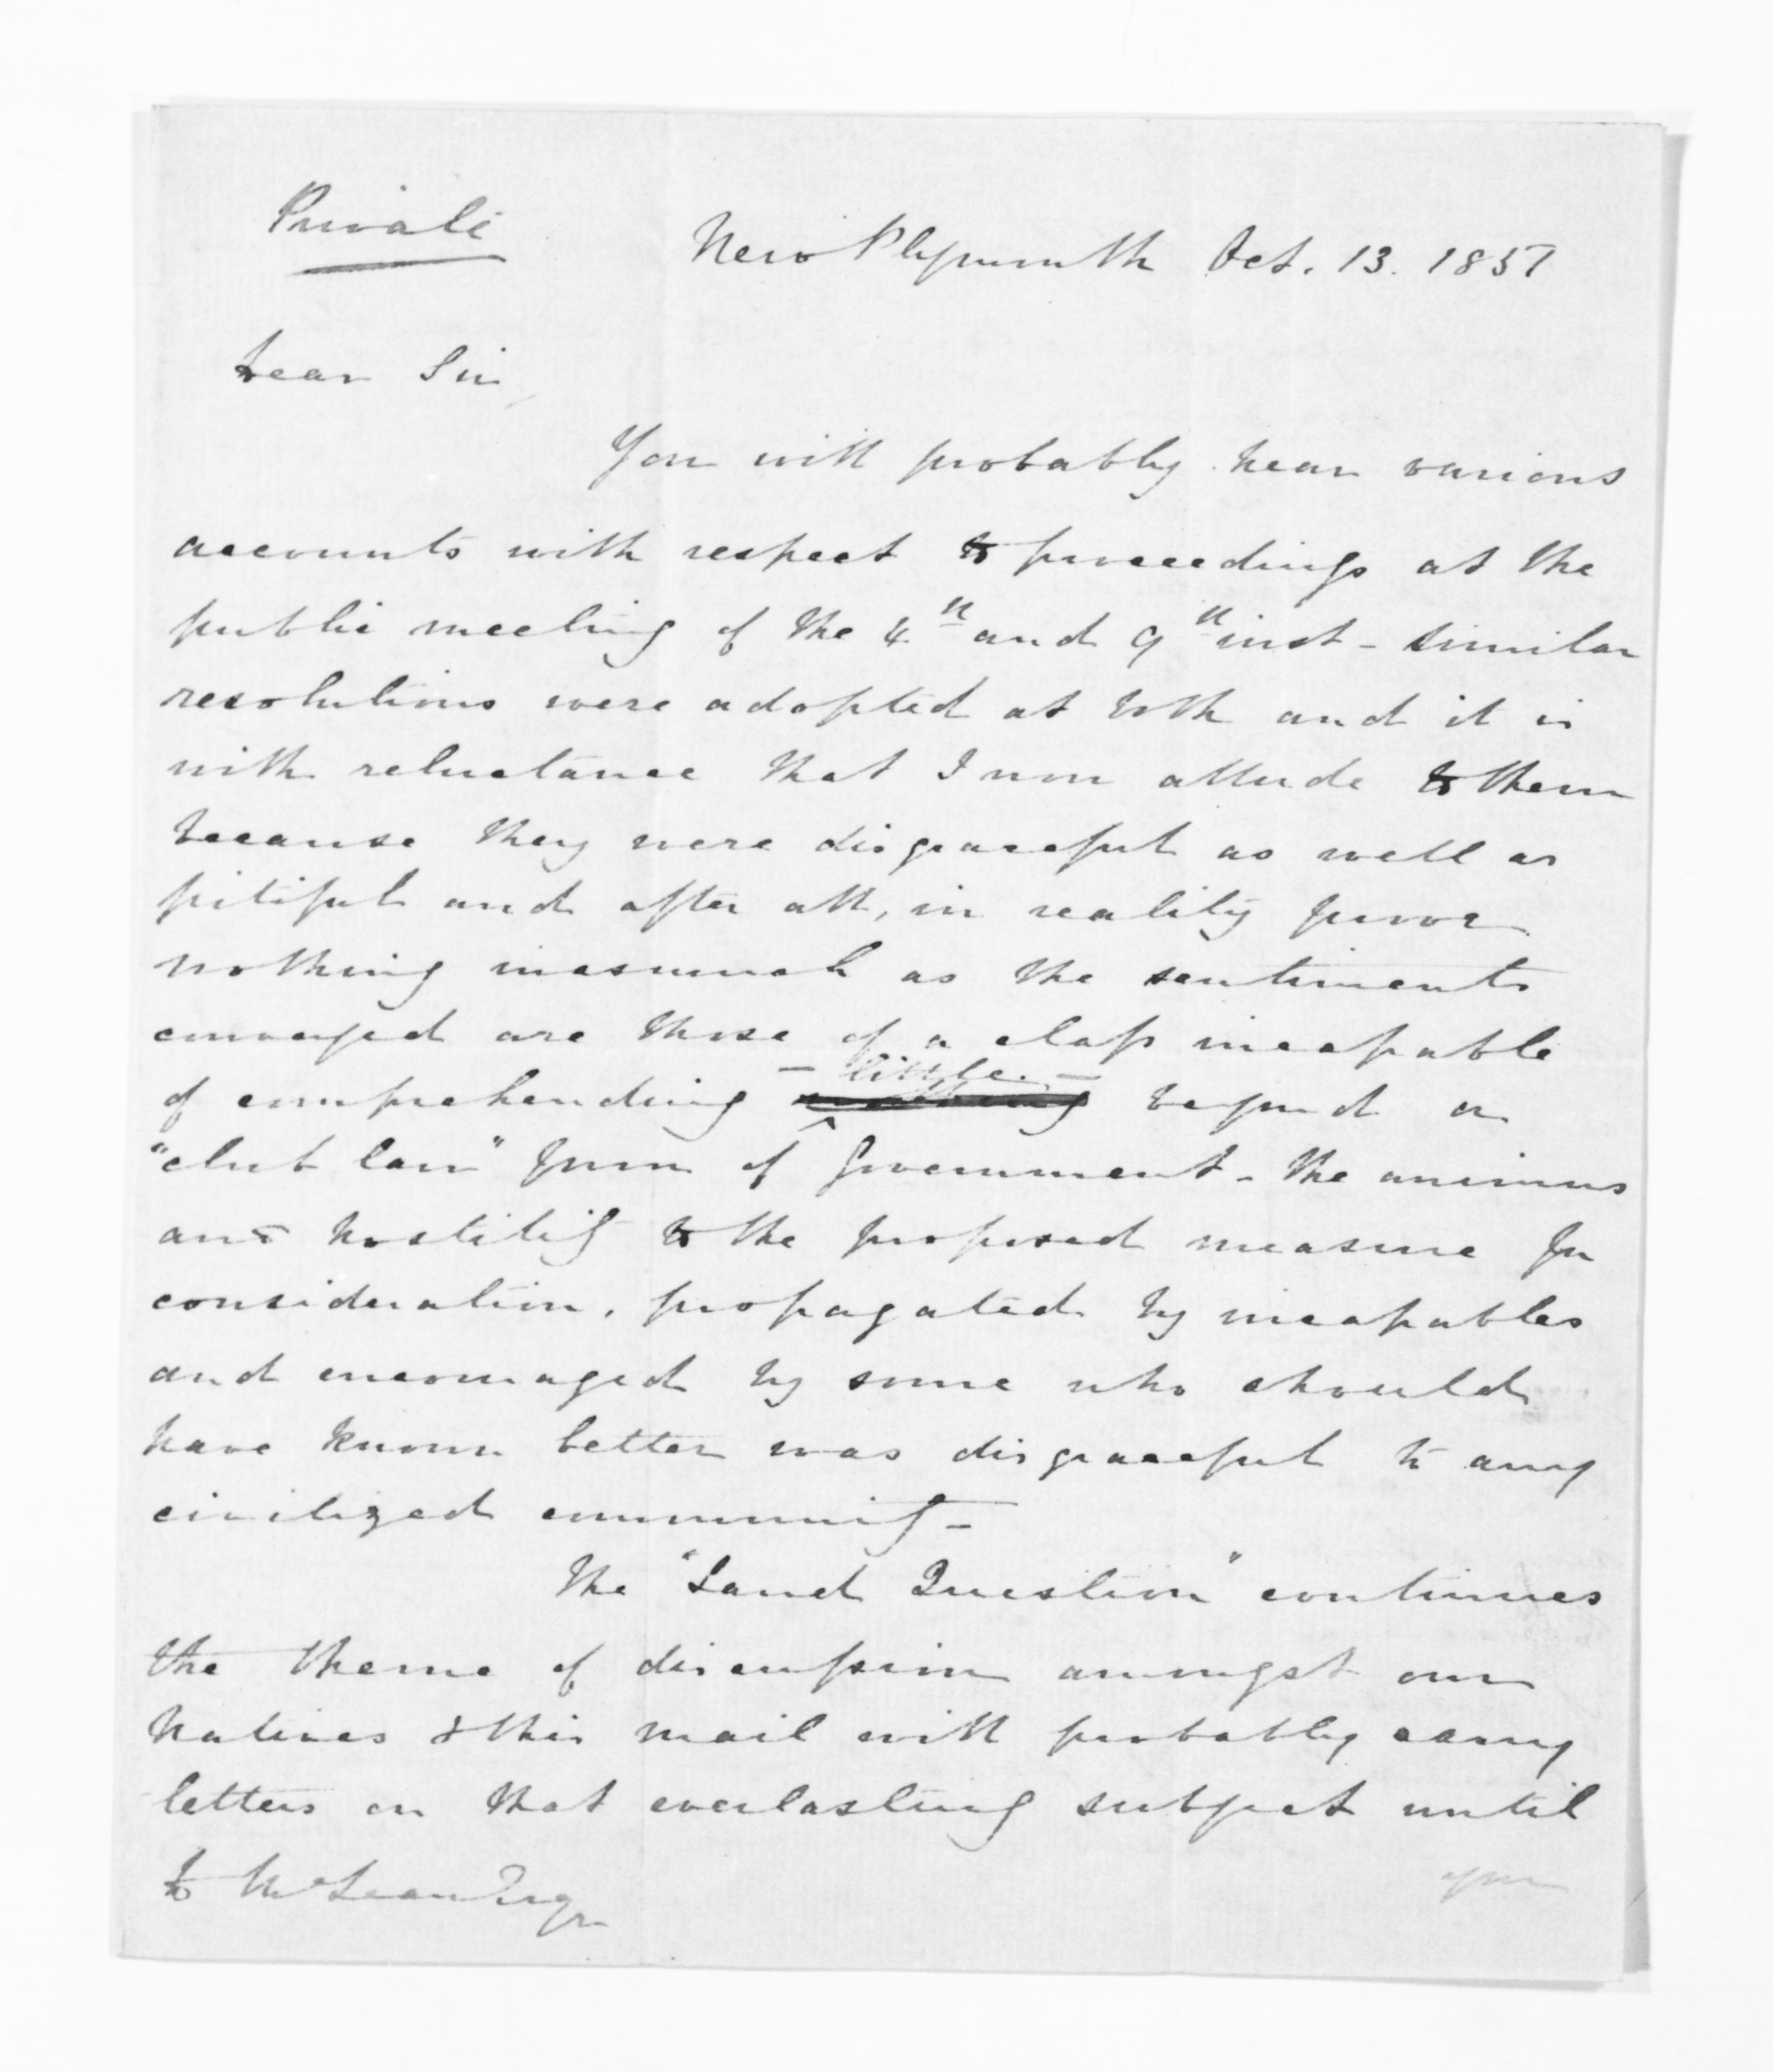 Private
New Plymouth Oct. 13. 1857
Dear Sir,
You will probably hear various
accounts with respect to proceedings at the
public meeting of the 4th and 9th inst - similar
resolutions were adopted at both and it is
with reluctance that I now allude to them
because they were disgraceful as well as
pitiful and after all, in reality prove
nothing inasmuch as the sentiments
conveyed are those of a class incapable
- little -
of comprehending nothing beyond a
"club law" form of Government - The animus
and hostility to the proposed measure for
consideration, propagated by incapables
and encouraged by some who should
have known better was disgraceful to any
civilized community -
The "Land Question" continues
the theme of discussion amongst our
Natives & this mail will probably carry
letters on that everlasting subject until
D McLean Esqr
your